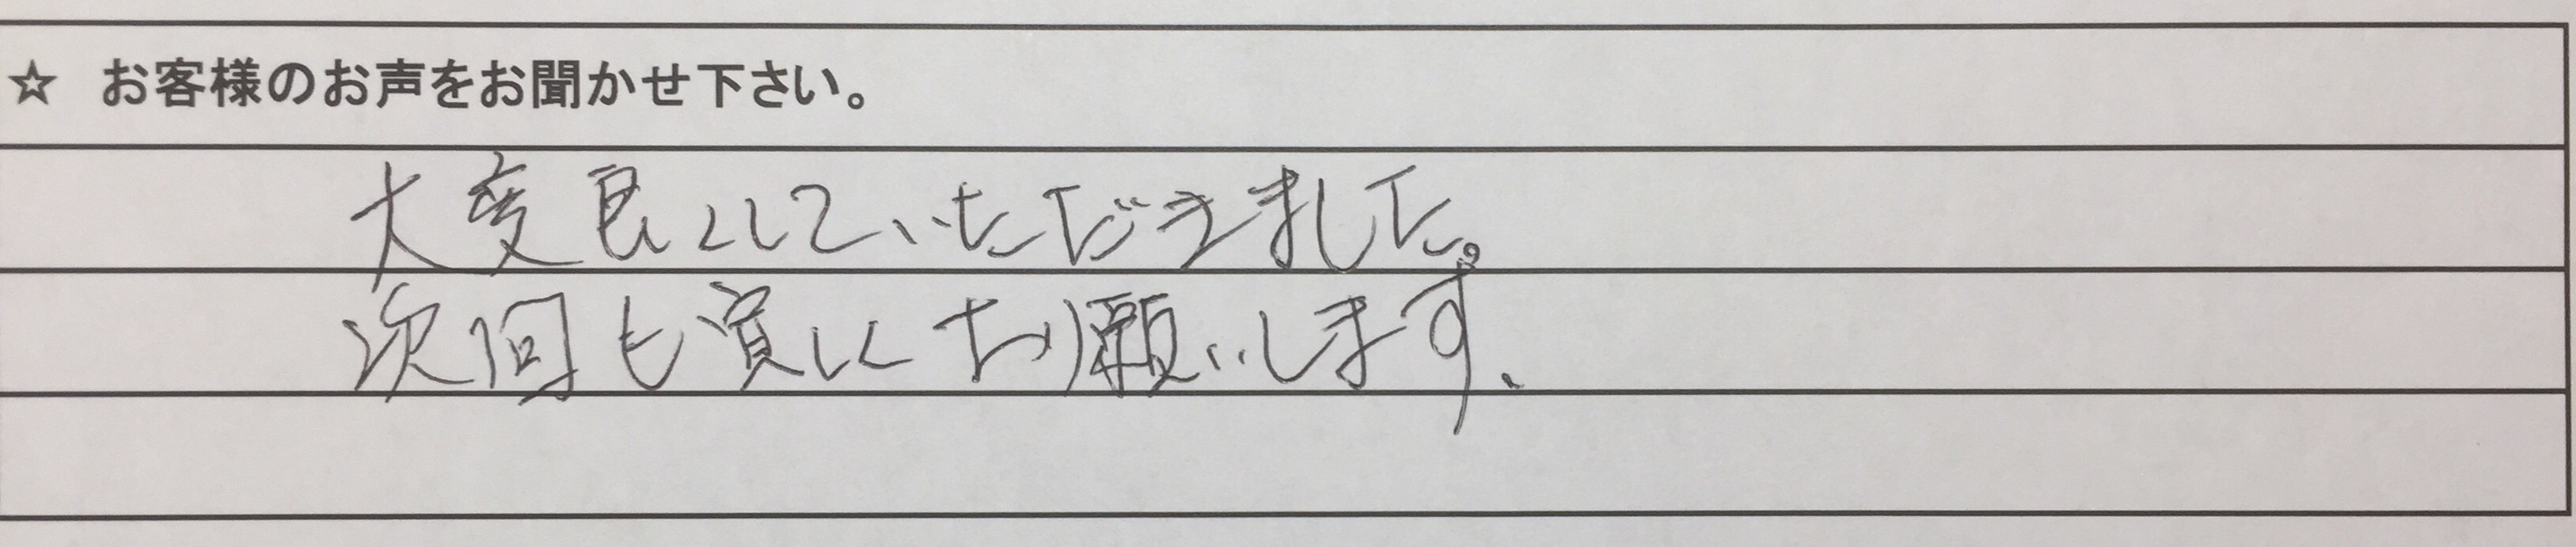 ☆ お客様のお声をお聞かせ下さい。
大変良くしていただきました。
次回も宜しくお願いします、